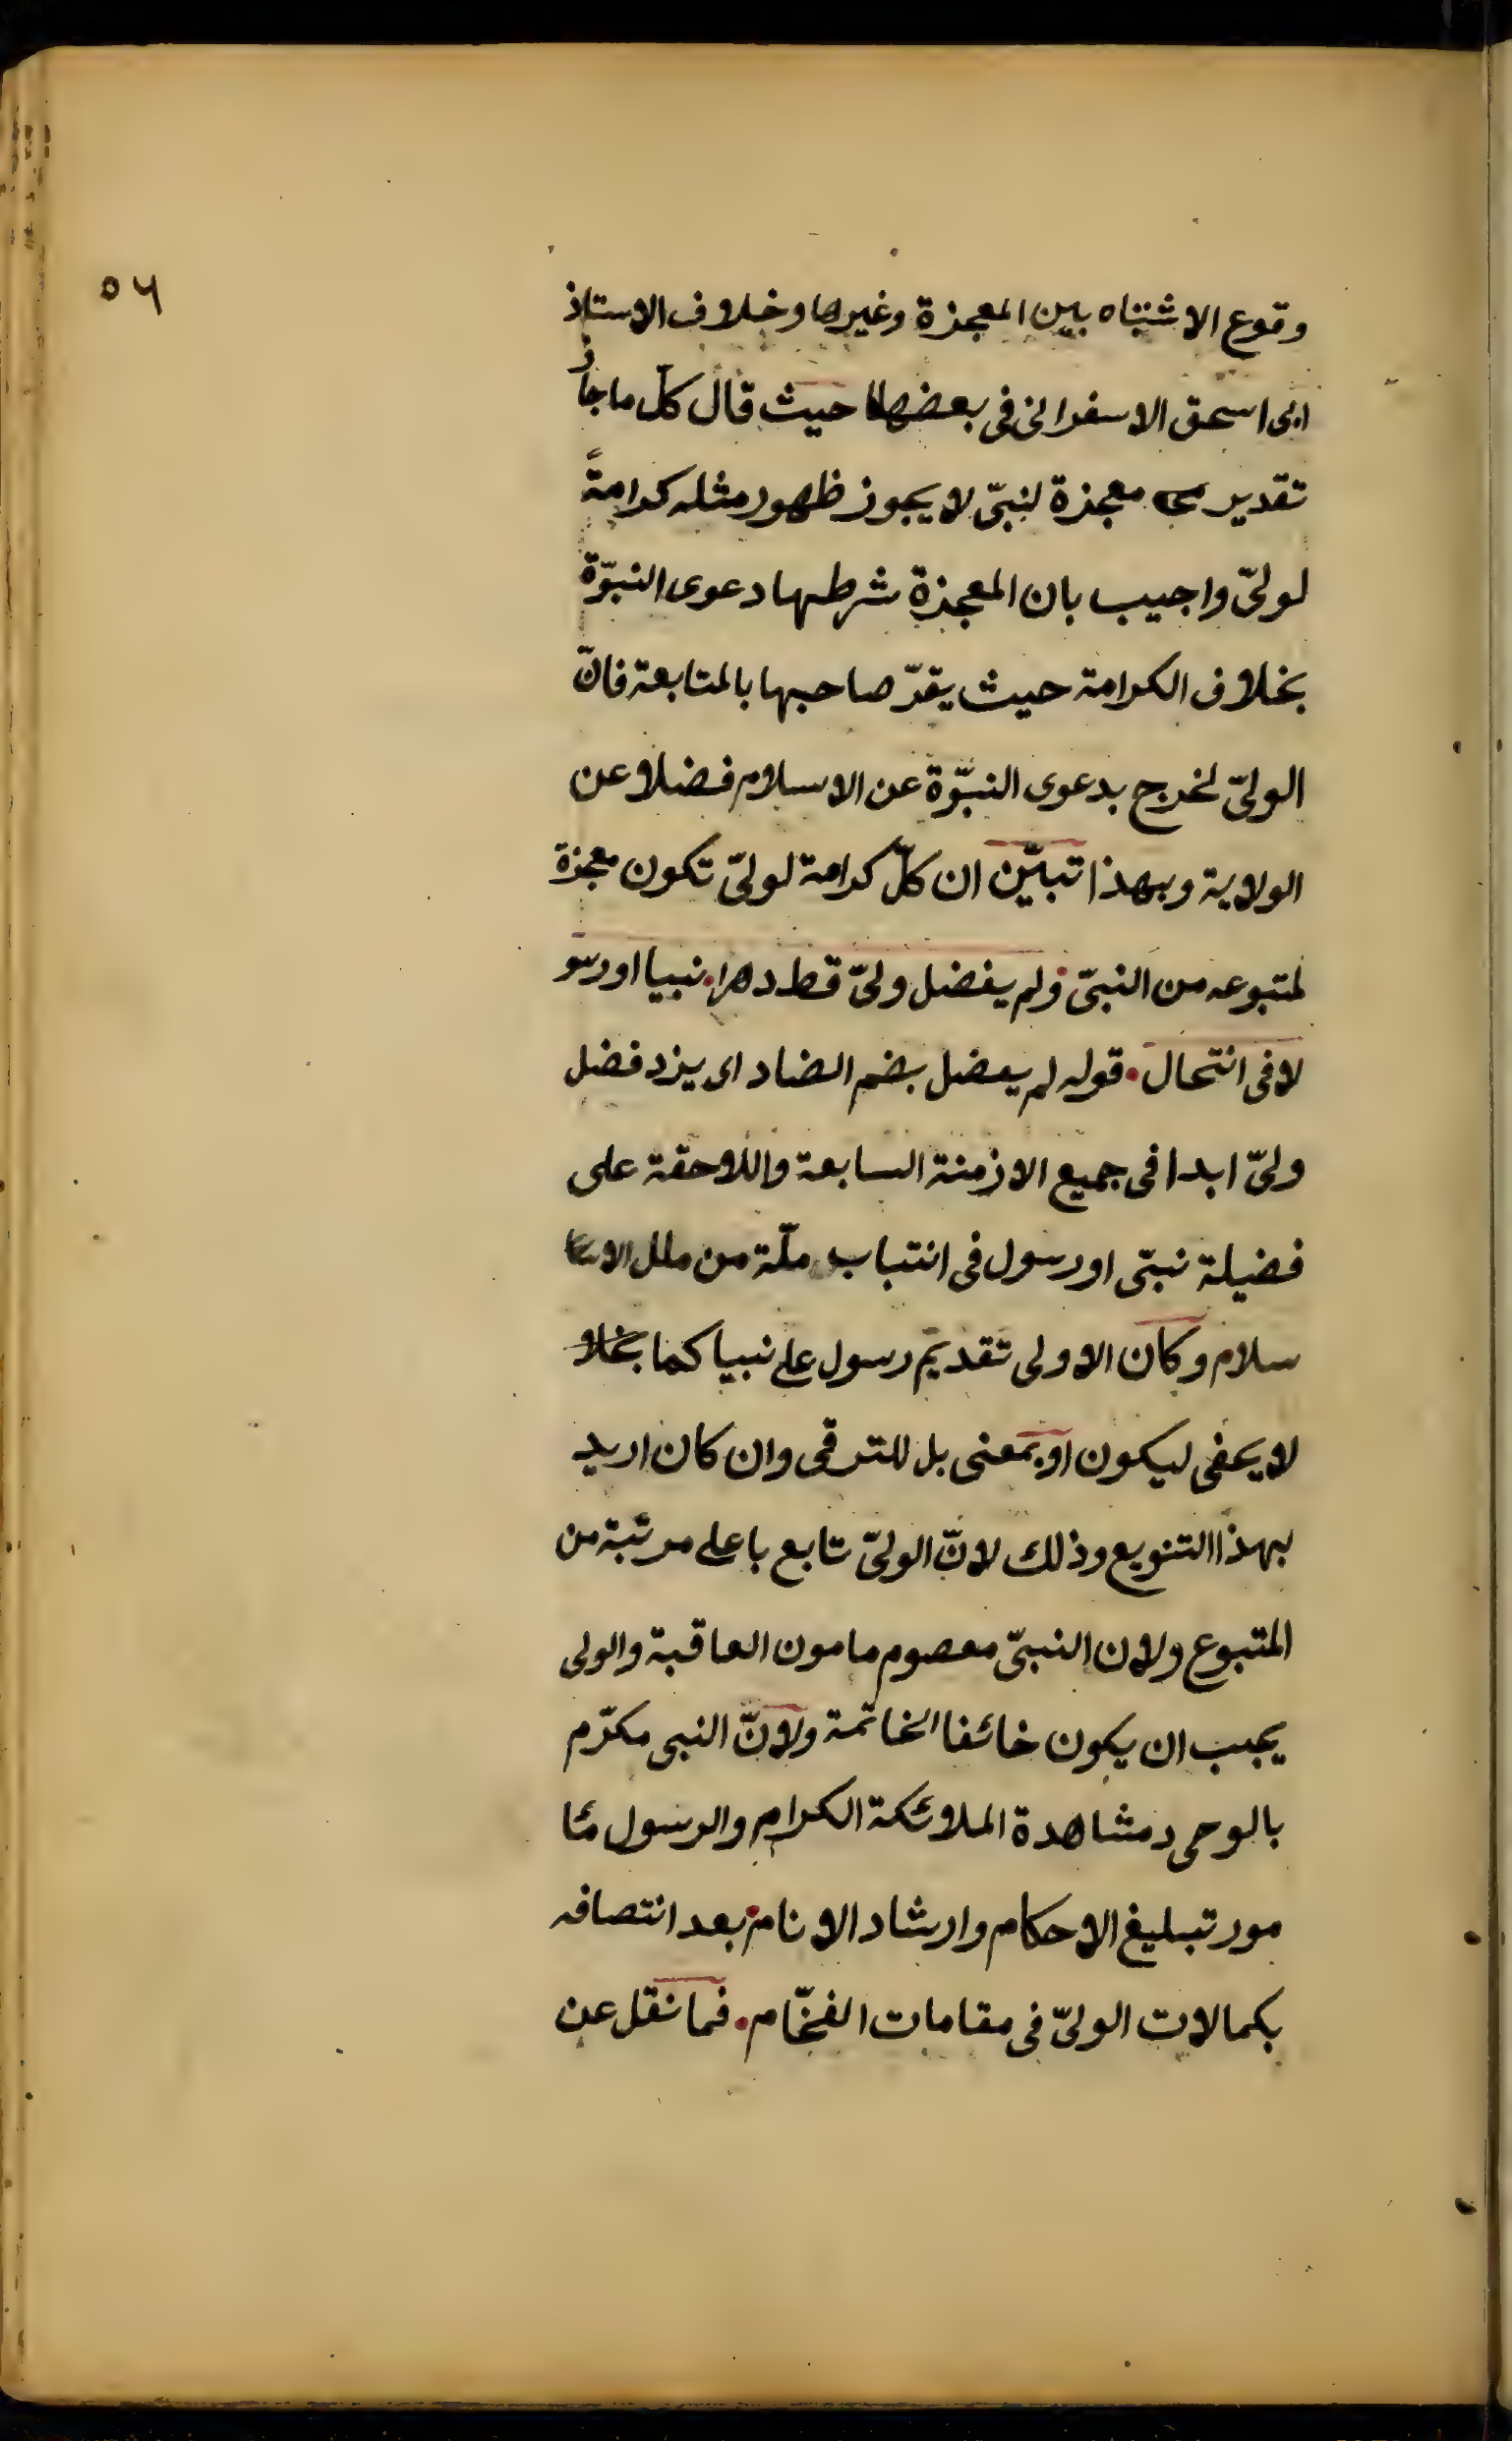 ٥٦
وقوع الاشتباه بين المعجزة وغيرها وخلاف الاستاذ
ابى اسحق الاسفرانى فى بعضها حيث قال كلّ ما جاز
تقديره معجزة لنبىّ لا يجوز ظهور مثله كرامةً
لولىّ واجيب بان المعجزة شرطها دعوى النبوّة
بخلاف الكرامة حيث يقرّ صاحبها بالمتابعة فانّ
الولىّ لخرج بدعوى النبوّة عن الاسلام فضلا عن
الولاية وبهذا تبيّن ان كلّ كرامة لولىّ تكون معجزة
لمتبوعه من النبىّ ولم يفضل ولىّ قط دهرا. نبيا او رسو
لا فى انتحال. قوله لم يفضل بضم الضاد اى يزد فضل
ولىّ ابدا فى جميع الازمنة السابعة واللاحقة على
فضيلة نبىّ او رسول فى انتباب ملّة من ملل الا
سلام وكان الاولى تقديم رسول على نبيا كما
لا يخفى ليكون او بمعنى بل للترقى وان كان اريد
بهذا التنويع وذلك لانّ الولىّ تابع باعلى مرتبة من
المتبوع ولان النبىّ معصوم مامون العاقبة والولى
يجب ان يكون خائفا الخاتمة ولانّ النبى مكرّم
بالوحى ومشاهدة الملائكة الكرام والرسول مئا
مور تبليغ الاحكام وارشاد الانام. بعد اتصافه
بكمالات الولىّ فى مقامات الفخّام. فما نقل عن